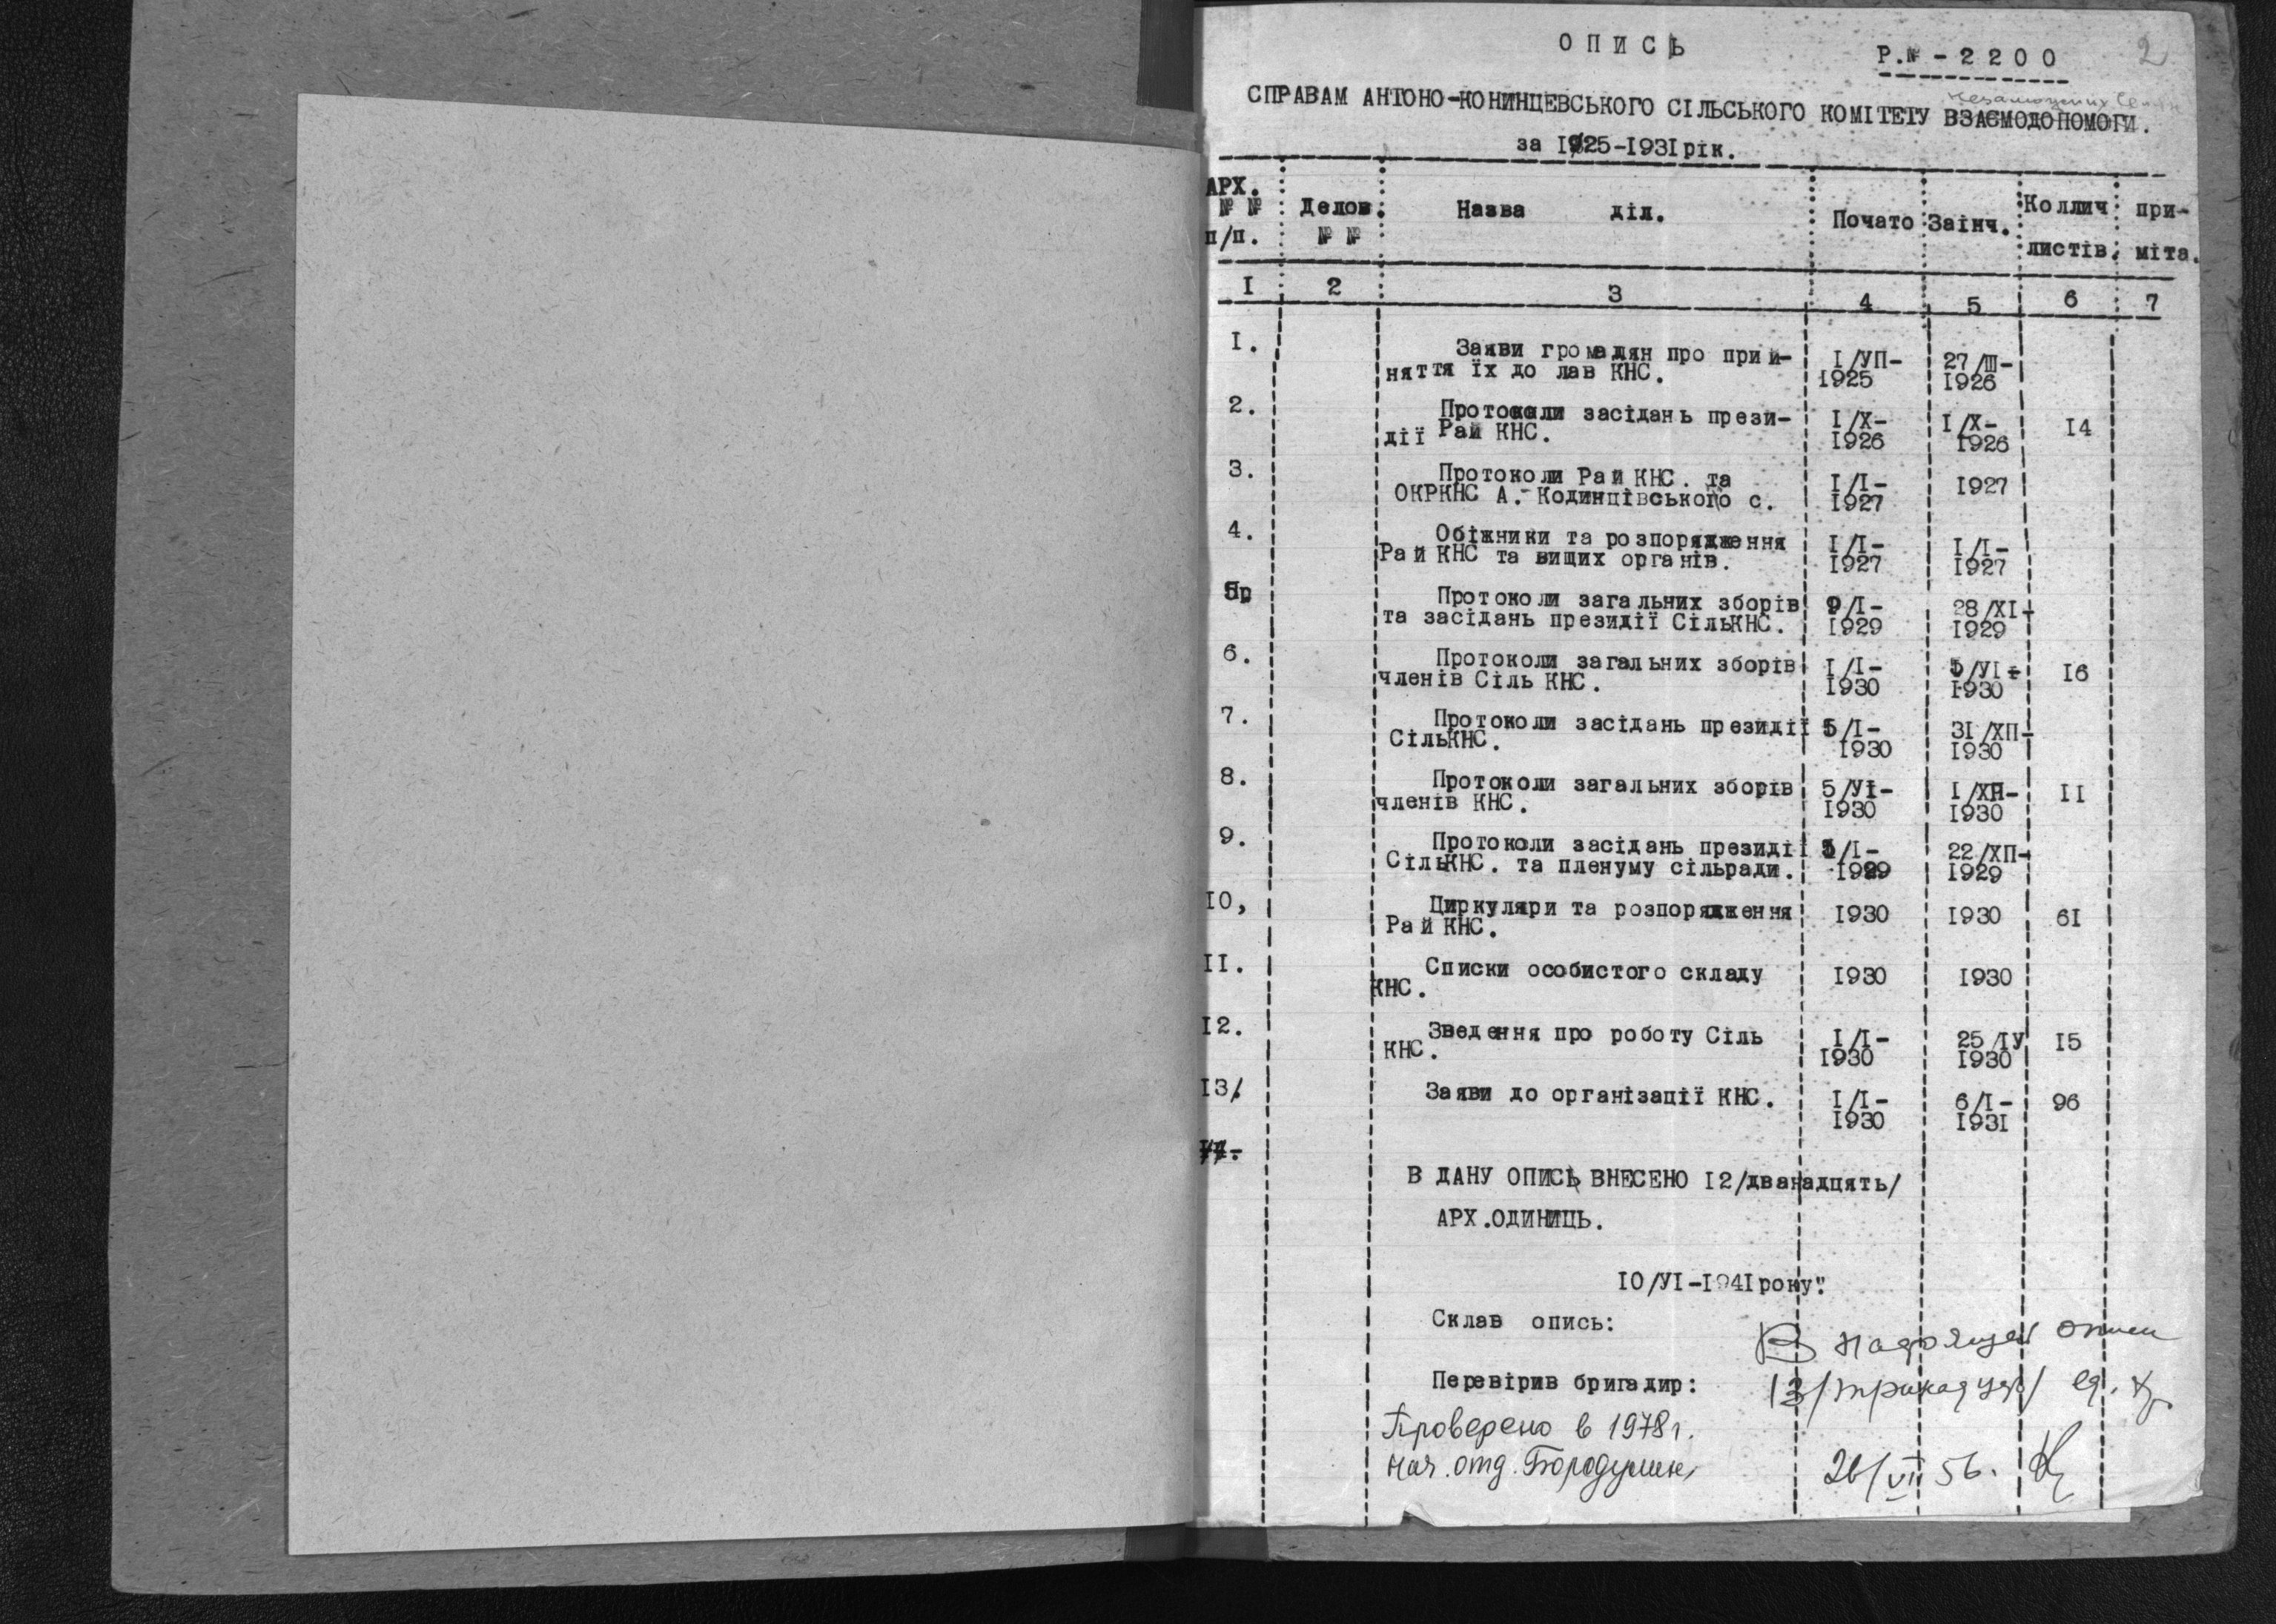 ОПИСЬ
Р.№-2200
2
СПРАВАМ АНТОНО-КОНИНЦЕВСЬКОГО СІЛЬСЬКОГО КОМІТЕТУ ВЗАЄМОДОПОМОГИ.
за 1925-1931 рік.
АРХ. №№ п/п. Делов. №№ Назва діл. Почато Заінч. Коллич листів. при-міта.
I 2 3 4 5 6 7
I. Заяви громадян про прий- I/УП- 27/Ш-
няття їх до лав КНС. 1925 1926
2. Протоколи засідань прези- I/Х- I/Х- 14
дії Рай КНС. 1926 1926
3. Протоколи Рай КНС. та I/I- 1927
ОКРКНС А.-Кодинцівського с. 1927
4. Обіжники та розпорядження I/I- I/I-
Рай КНС та вищих органів. 1927 1927
5. Протоколи загальних зборів 9/I- 28/ХІ-
та засідань президії СільКНС. 1929 1929
6. Протоколи загальних зборів I/I- 5/УІ- 16
членів Сіль КНС. 1930 1930
7. Протоколи засідань президії 5/I- 31/ХП-
СільКНС. 1930 1930
8. Протоколи загальних зборів 5/УІ- I/ХП- II
членів КНС. 1930 1930
9. Протоколи засідань президії /I- 22/ХП-
СільКНС. та пленуму сільради. 1929 1929
10, Циркуляри та розпорядження 1930 1930 61
Рай КНС.
II. Списки особистого складу 1930 1930
КНС.
12. Зведення про роботу Сіль I/I- 25/ІУ 15
КНС. 1930 1930
13/. Заяви до організації КНС. I/I- 6/I- 96
1930 1931
В ДАНУ ОПИСЬ ВНЕСЕНО 12/дванадцять/
АРХ.ОДИНИЦЬ.
10/УІ-1941року.
Склав опись:
В опись
Перевірив бригадир:
13/тринадцять/ ед. хр.
Проверено в 1978 г.
нач. отд.
26/VII 56.